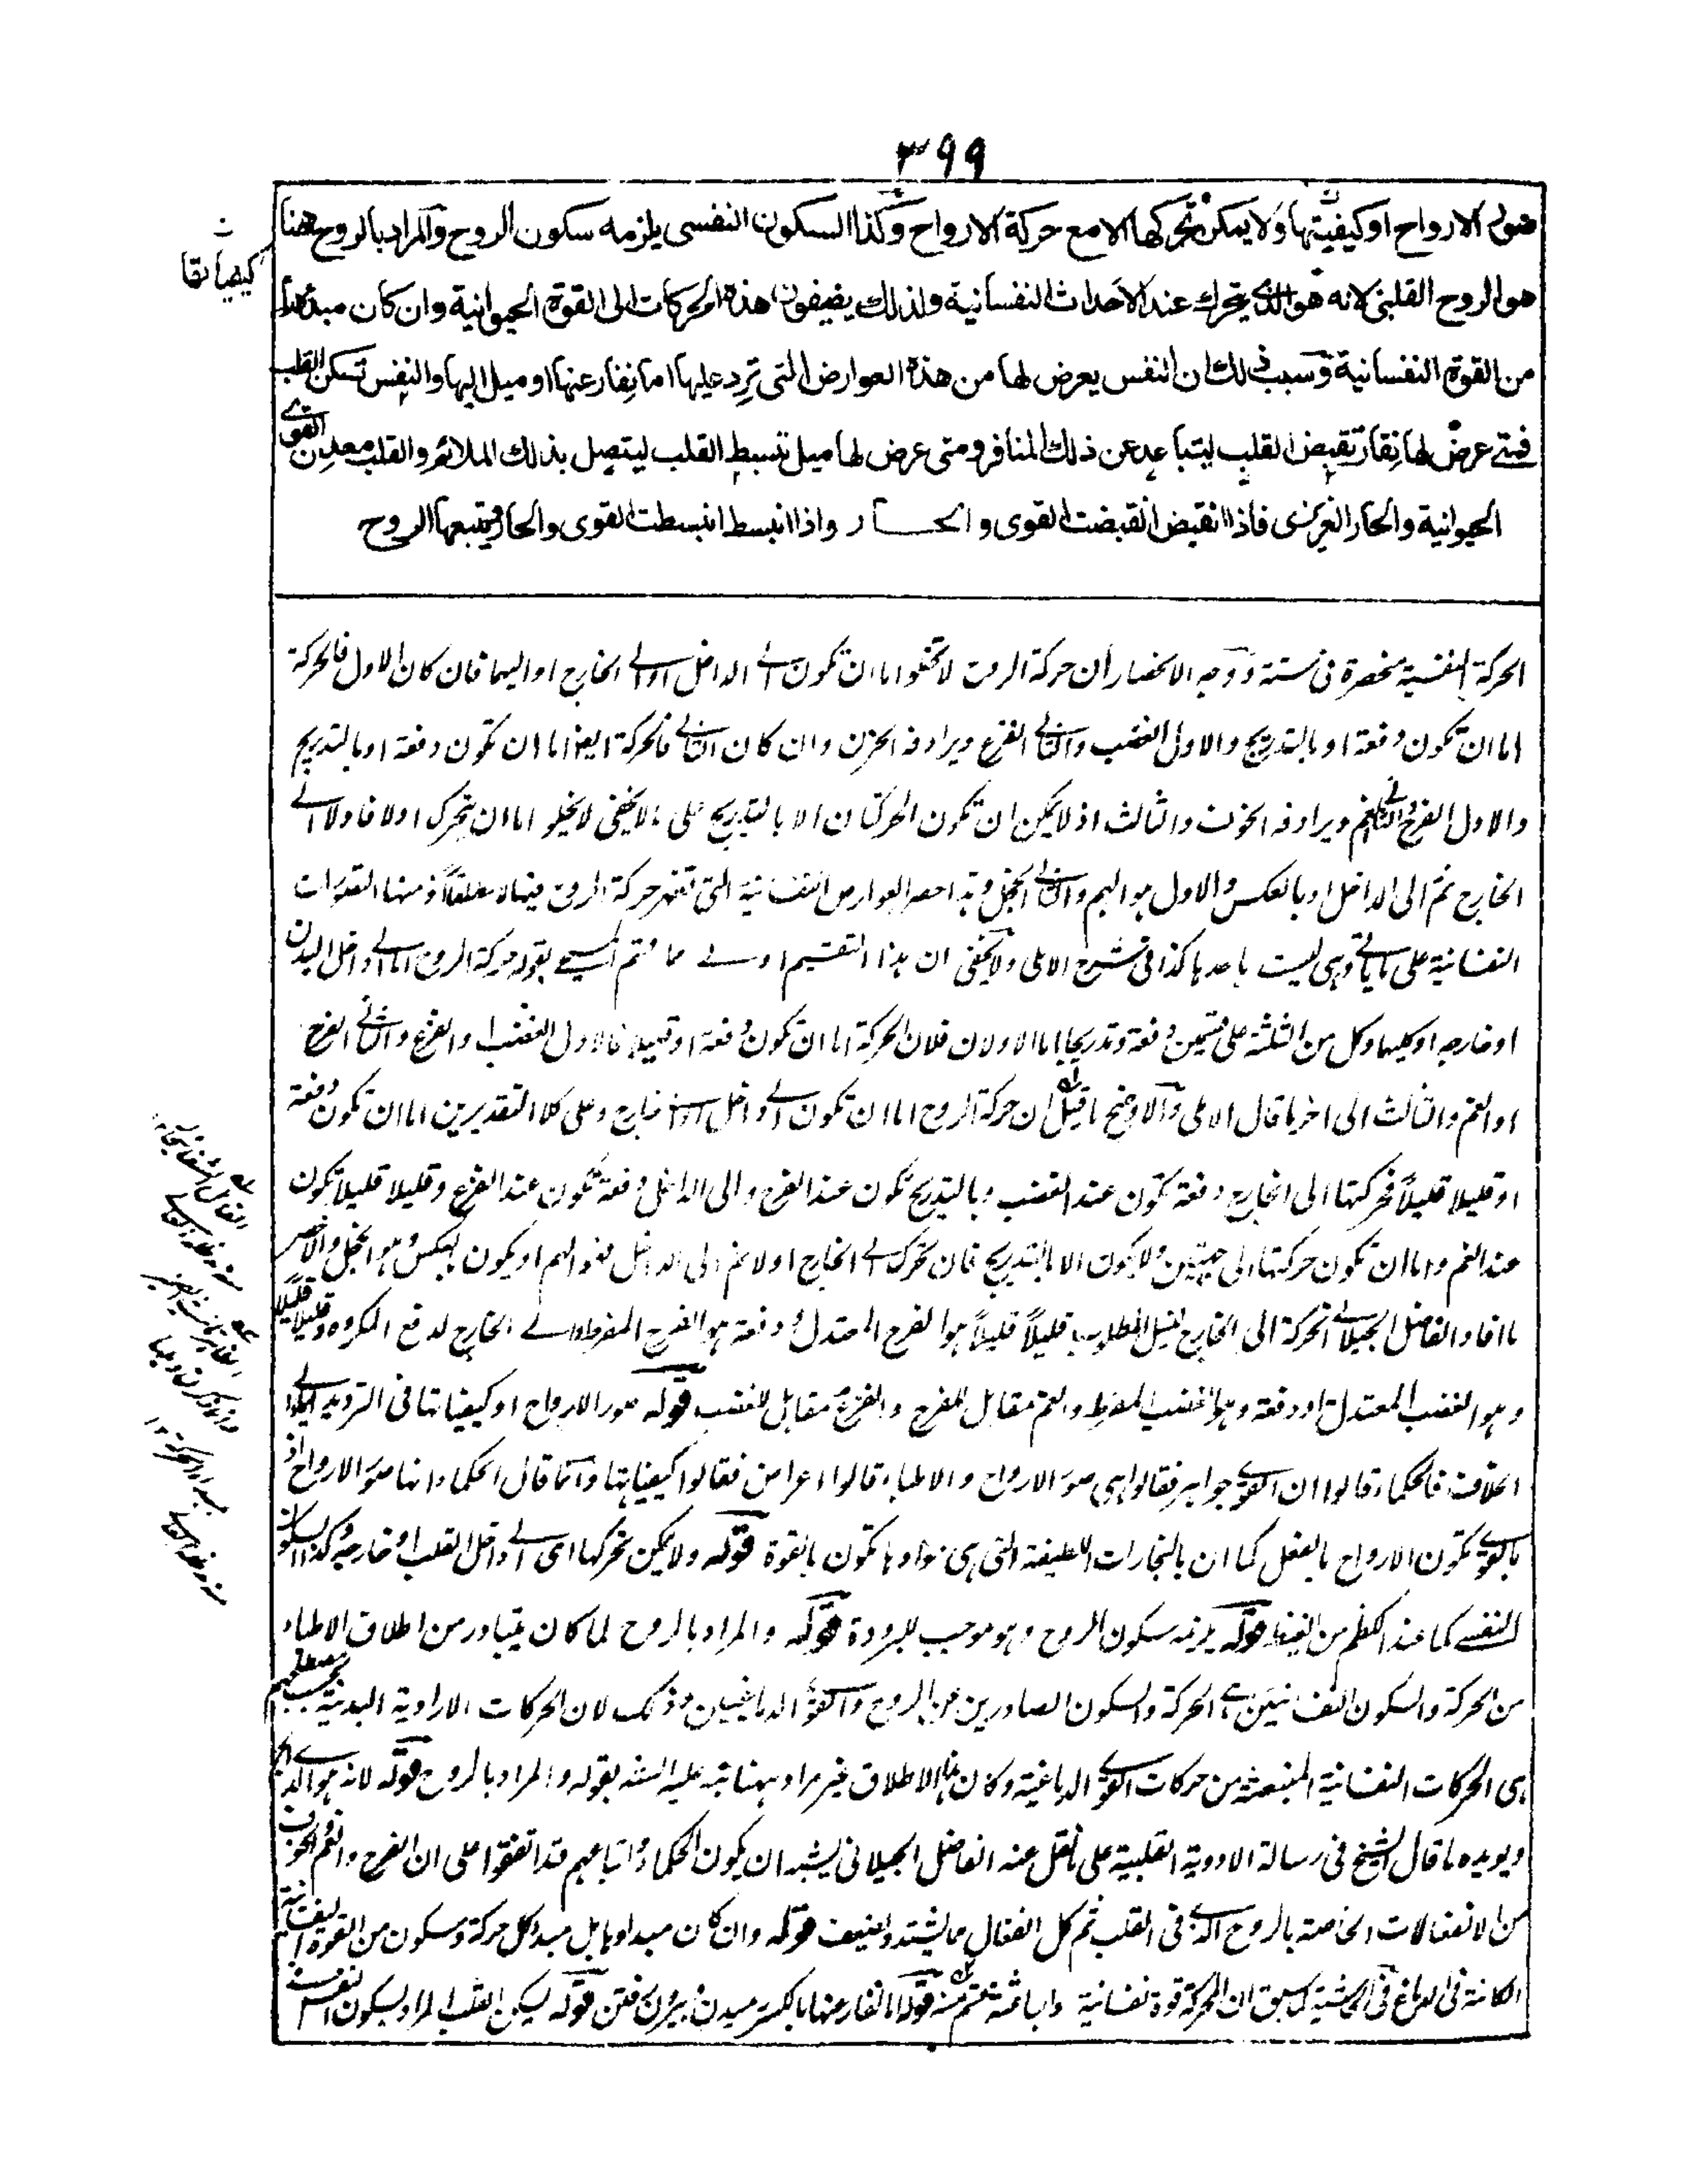 ٣٩٩
صور الارواح او كيفيتها ولا يمكن تحركها الا مع حركة الارواح وكذا السكون النفسى يلزمه سكون الروح والمراد بالروح هنا
كيفياتها
هو الروح القلبى لانه هو الذى يتحرك عند الاحداث النفسانية ولذلك يضيفون هذه الحركات الى القوة الحيوانية وان كان مبدئها
من القوة النفسانية وسبب ذلك ان النفس يعرض لها من هذه العوارض التى ترد عليها اما نفار عنها او ميل اليها والنفس تسكن القلب
فمتى عرض لها نفار تقبض القلب ليتباعد عن ذلك المنافر ومتى عرض لها ميل تبسط القلب ليتصل بذلك الملائم والقلب معدن القوى
الحيوانية والحار الغريزى فاذا انقبض انقبضت القوى والحار واذا انبسط انبسطت القوى والحار فيتبعها الروح
الحركة النفسية منحصرة فى ستة ووجه الانحصار ان حركة الروح لا تخلو اما ان تكون الى الداخل او الى الخارج او اليهما فان كان الاول فالحركة
اما ان تكون دفعة او بالتدريج والاول الغضب والثانى الفزع ويرادفه الحزن وان كان الثانى فالحركة ايضا اما ان تكون دفعة او بالتدريج
والاول الفرح والثانى الغم ويرادفه الخوف والثالث اذ لا يمكن ان تكون الحركتان الا بالتدريج على ما لا يخفى لا يخلو اما ان يتحرك اولا فاولا الى
الخارج ثم الى الداخل او بالعكس والاول هو الهم والثانى الخجل وبذا حصر العوارض النفسانية التى تظهر حركة الروح فيها لا مطلقاً ومنها التصورات
النفسانية على ما ياتى وهى ليست باحدها كذا فى شرح الاملى ولا يخفى ان هذا التقسيم اولى مما قسم المسيحى بقوله حركة الروح اما الى داخل البدن
او خارجه او كليهما وكل من الثلثة على قسمين دفعة وتدريجا اما الاولان فلان الحركة اما ان تكون دفعة او قليلا فالاول الغضب والفزع والثانى الفرح
او الغم والثالث الى اخر ما قال الاملى والاوضح ما قيل ان حركة الروح اما ان تكون الى داخل او خارج وعلى كلا التقديرين اما ان تكون دفعة
او قليلا قليلاً فحركتها الى الخارج دفعة تكون عند الغضب وبالتدريج تكون عند الفرح والى الداخل دفعة تكون عند الفزع وقليلا قليلا تكون
عند الغم واما ان تكون حركتها الى جهتين ولا يكون الا بالتدريج فان تحرك الى الخارج اولا ثم الى الداخل فهو الهم او يكون بالعكس وهو الخجل والاخصر
ما افاد الفاضل الجيلانى الحركة الى الخارج لنيل المطلوب قليلاً قليلاً هو الفرح المعتدل او دفعة هو الفرح المفرط والى الخارج لدفع المكروه قليلا قليلا
وهو الغضب المعتدل او دفعة وهو الغضب المفرط والغم مقابل للفرح والفزع مقابل للغضب قوله صور الارواح او كيفياتها فى الترديد
اختلاف فالحكماء قالوا ان القوى جواهر فقالوا هى صور الارواح والاطباء قالوا اعراض فقالوا كيفياتها وانما قال الحكماء انها صور الارواح اذ
بالقوى تكون الارواح بالفعل كما ان بالبخارات اللطيفة التى هى موادها تكون بالقوة قوله ولا يمكن تحركها اى الى داخل القلب او خارجه وكذا السكون
النفسى كما عند الكظم من الغيظ قوله يلزمه سكون الروح وهو موجب للبرودة قوله والمراد بالروح لما كان يتبادر من اطلاق الاطباء
من الحركة والسكون النفسانيين هى الحركة والسكون الصادرين من الروح والقوى الدماغيين وذلك لان الحركات الارادية البدنية بحسب مصطلحهم
هى الحركات النفسانية المنبعثة من حركات القوى الدماغية وكان هذا الاطلاق غير مراد ههنا نبه عليه الشه بقوله والمراد بالروح قوله لانه هو الذى الخ
ويويده ما قال الشيخ فى رسالة الادوية القلبية على ما نقل عنه الفاضل الجيلانى يشبه ان يكون الحكماء واتباعهم قد اتفقوا على ان الفرح والغم والخوف
من الانفعالات الخاصة بالروح الذى فى القلب ثم كل انفعال مما يشتد ويضعف قوله وان كان مبدأوها بل مبدأ كل حركة وسكون من القوة النفسانية
الكائنة فى الدماغ فى الحاشية كما سبق ان الحركة قوة نفسانية واباعثة قوله اما نفار عنها بالكسر رميدن وبيرون رفتن قوله يسكن القلب المراد بسكون النفس